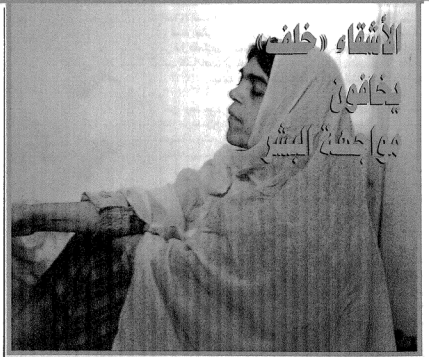 الأشقاء «خلف»
يخافون
مواجهة البشر